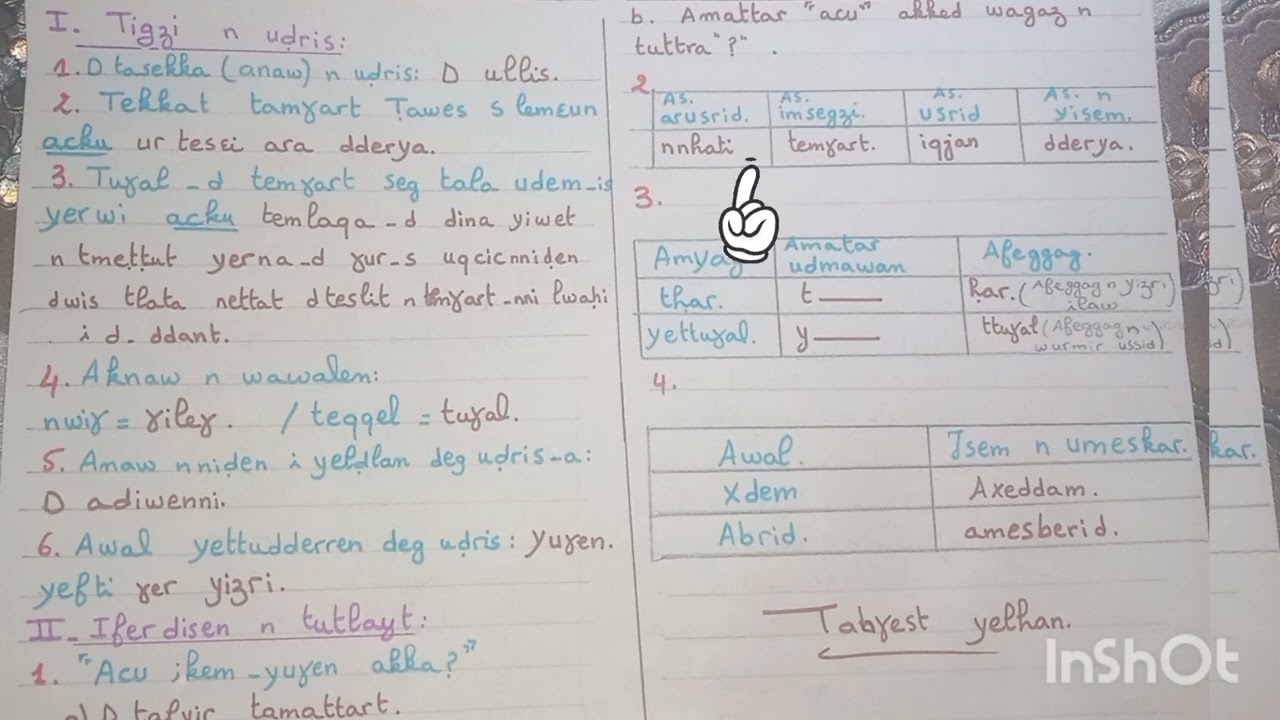 I. Tigzi n uḍris:
1. D tasekka (anaw) n uḍris: D ullis.
2. Tekkat tamɣart Ṭawes s lemɛun
acku ur tesɛi ara dderya.
3. Tuɣal-d temɣart seg tala udem-is
yerwi acku temlaqa-d dina yiwet
n tmeṭṭut yerna-d ɣur-s uqcicnniden
dwis tlata nettat d teslit n temɣart-nni lwaḥi
i d-ddant.
4. Aknaw n wawalen:
nwiɣ = ɣileɣ. / teqqel = tuɣal.
5. Anaw nniden i yeldlan deg uḍris-a:
D adiwenni.
6. Awal yettudderren deg uḍris: yuɣen.
yefti ɣer yizri.
II. Iferdisen n tutlayt:
1. "Acu ;kem-yuɣen akka?"
a) D tafyir tamattart.
b. Amattar "acu" akked wagaz n
tuttra "?".
2
As. arusrid. As. imsegzi. As. usrid As. n yisem.
nnhati temɣart. iqjan dderya.
3.
Amyag Amatar udmawan Afeggag.
thar. t har. (Afeggag n yizri ilaw
yettuɣal. y ttuɣal (Afeggag n wurmir ussid)
4.
Awal. Isem n umeskar. kar.
Xdem Axeddam.
Abrid. amesberid.
Tabɣest yelhan.
InShOt